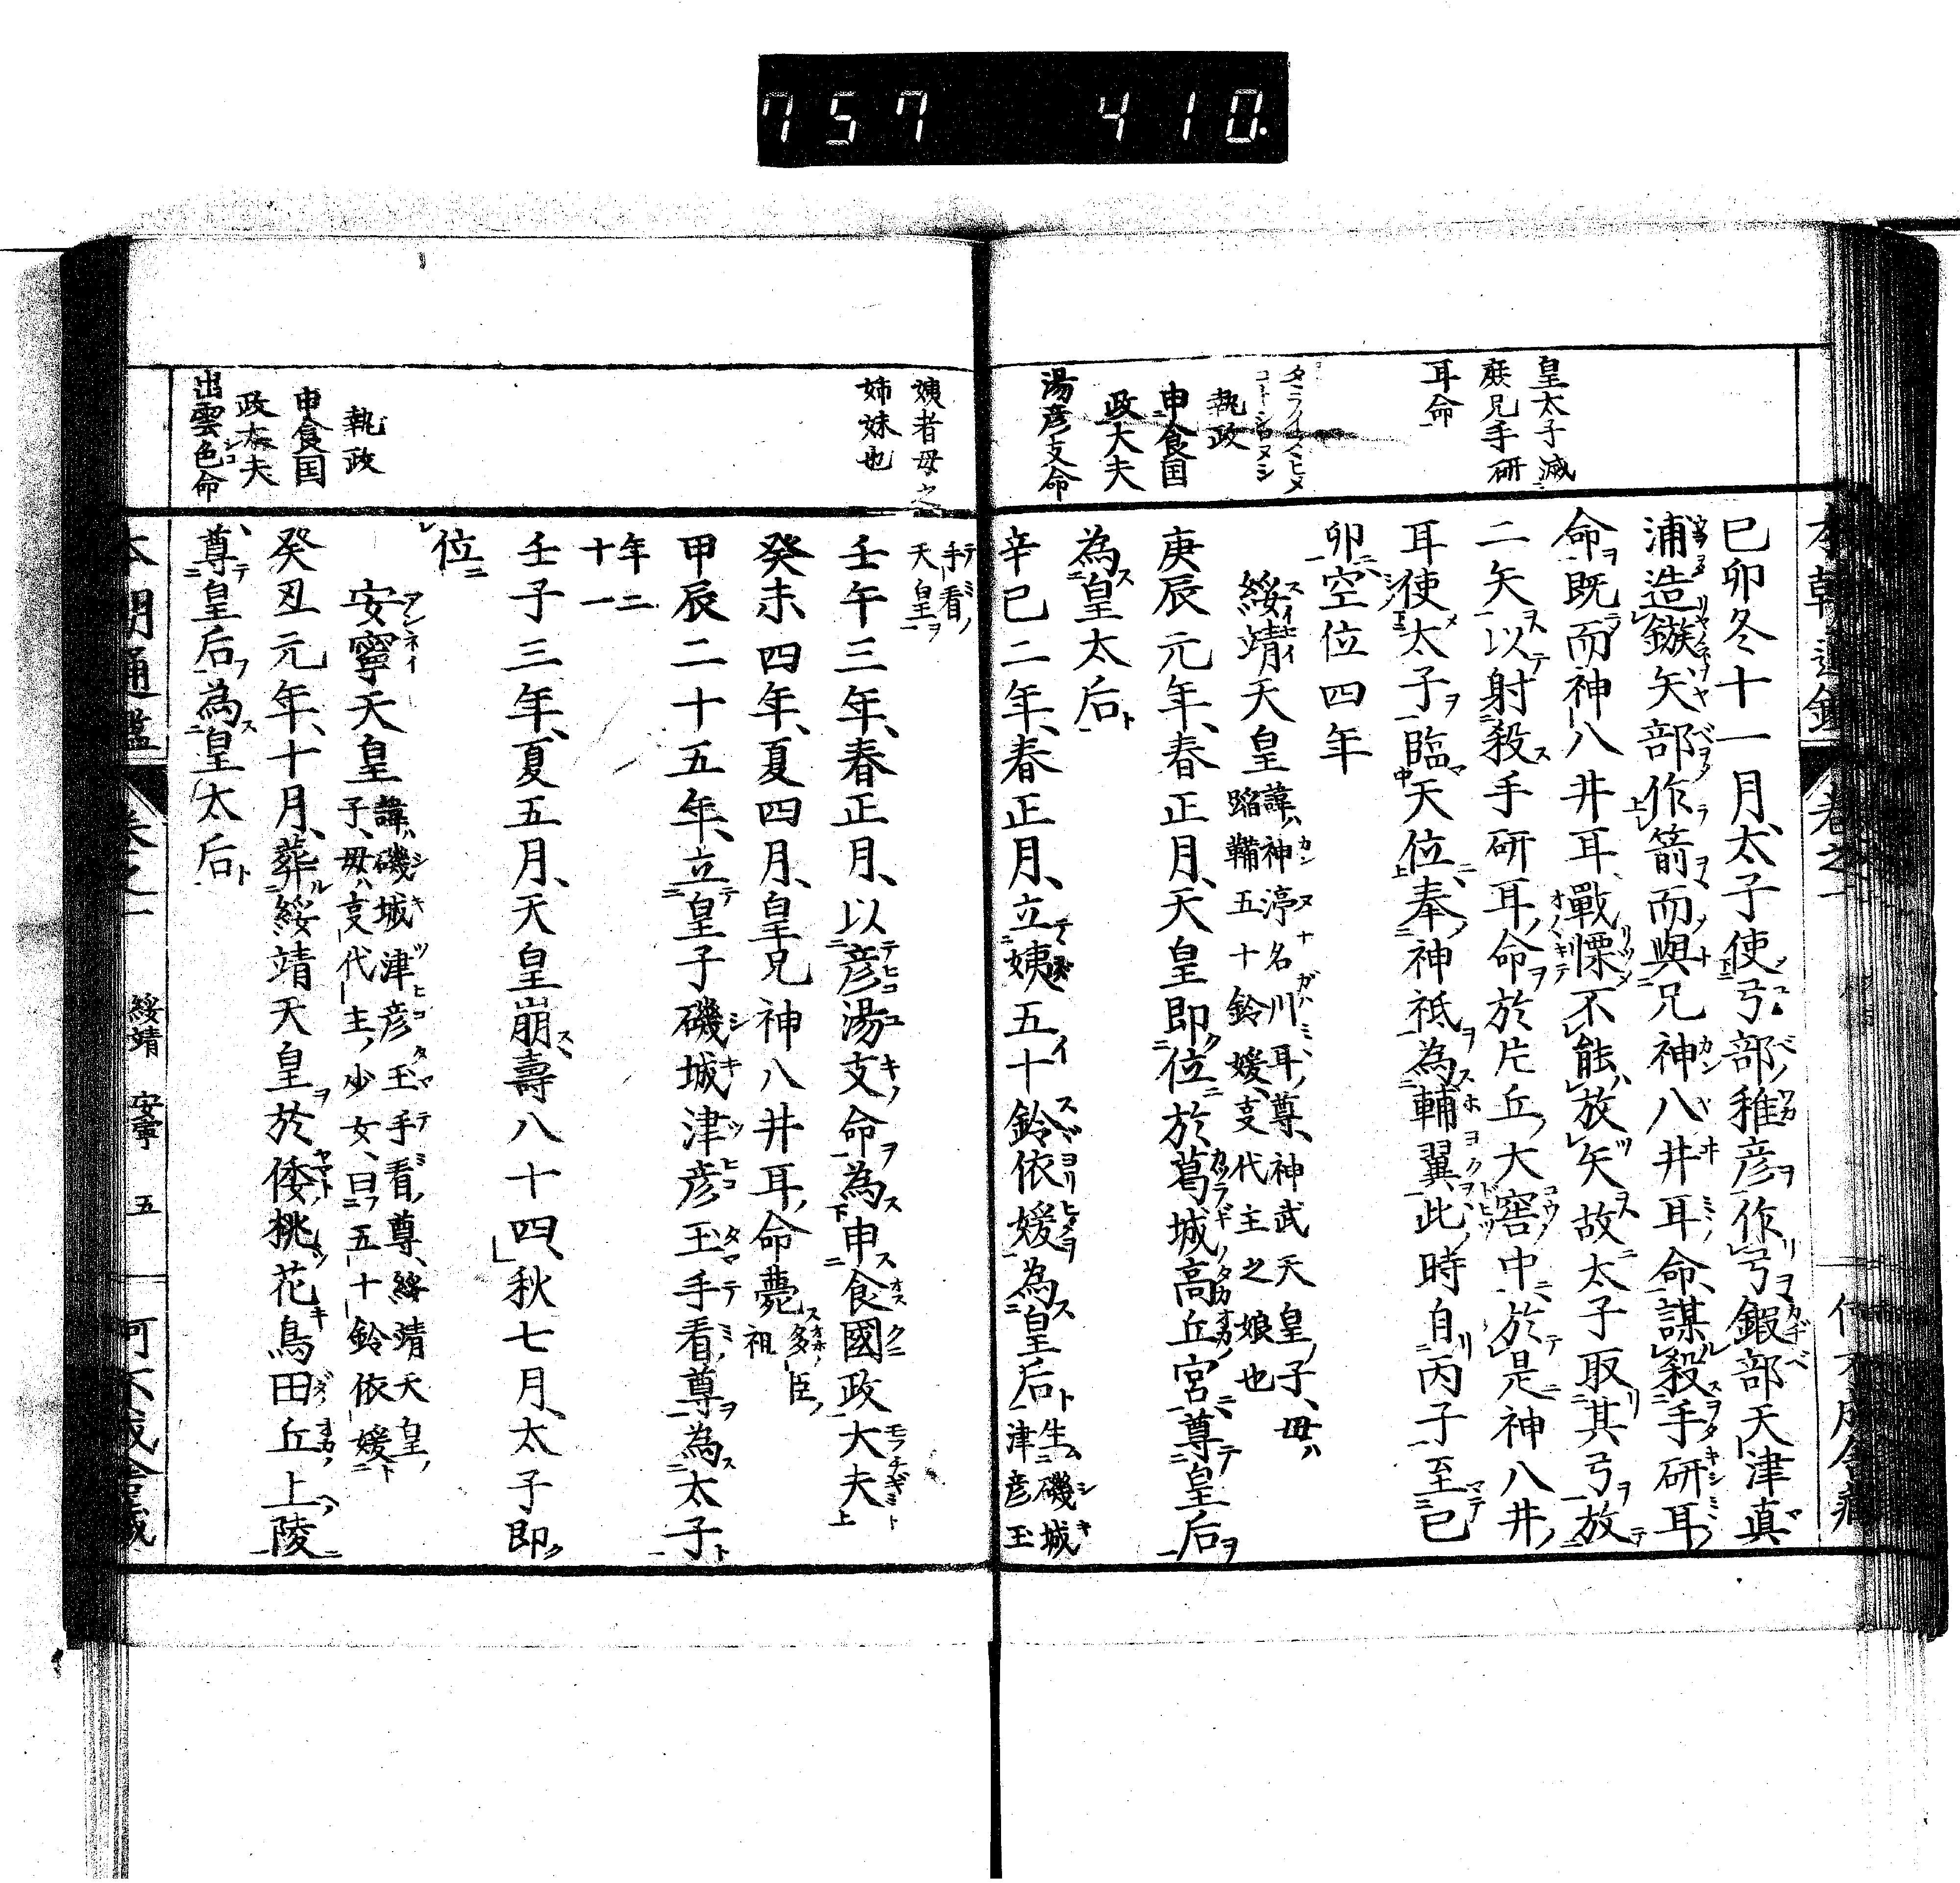 757 410.
皇太子滅
庶兄手研
耳命
タヽライスヽヒメ
コトシロヌシ
執政
申食国
政大夫
湯彦支命
己卯冬十一月、太子使弓部稚彦作弓鍜部天津真
浦造鏃矢部作箭而與兄神八井耳命、謀殺手研耳
命既而神八井耳、戰慄不能放矢故太子取其弓放
二矢以射殺手研耳命於片丘大窖中於是神八井
耳使太子臨天位、奉神祇為輔翼、此時自丙子至己
卯空位四年
綏靖天皇諱神渟名川耳尊、神武天皇子、母ハ
蹈鞴五十鈴媛、支代主之娘也
庚辰元年、春正月、天皇即位於葛城高丘宮、尊皇后
為皇太后
辛巳二年、春正月、立姨五十鈴依媛為皇后生磯城
津彦玉
姨者母之
姉妹也
執政
申食国
政大夫
出雲色命
手看
天皇
壬午三年、春正月、以彦湯支命為申食國政大夫
癸未四年、夏四月、皇兄神八井耳命薨多臣
祖
甲辰二十五年、立皇子磯城津彦玉手看尊為太子
年二
十一
壬子三年、夏五月、天皇崩、壽八十四、秋七月、太子即
位
安寧天皇諱磯城津彦玉手看尊、綏靖天皇
子、母、支代主少女、曰五十鈴依媛
癸丑元年、十月、葬綏靖天皇於倭桃花鳥田丘上陵
尊皇后為皇太后
本朝通鑑 卷之一 綏靖 安寧 五